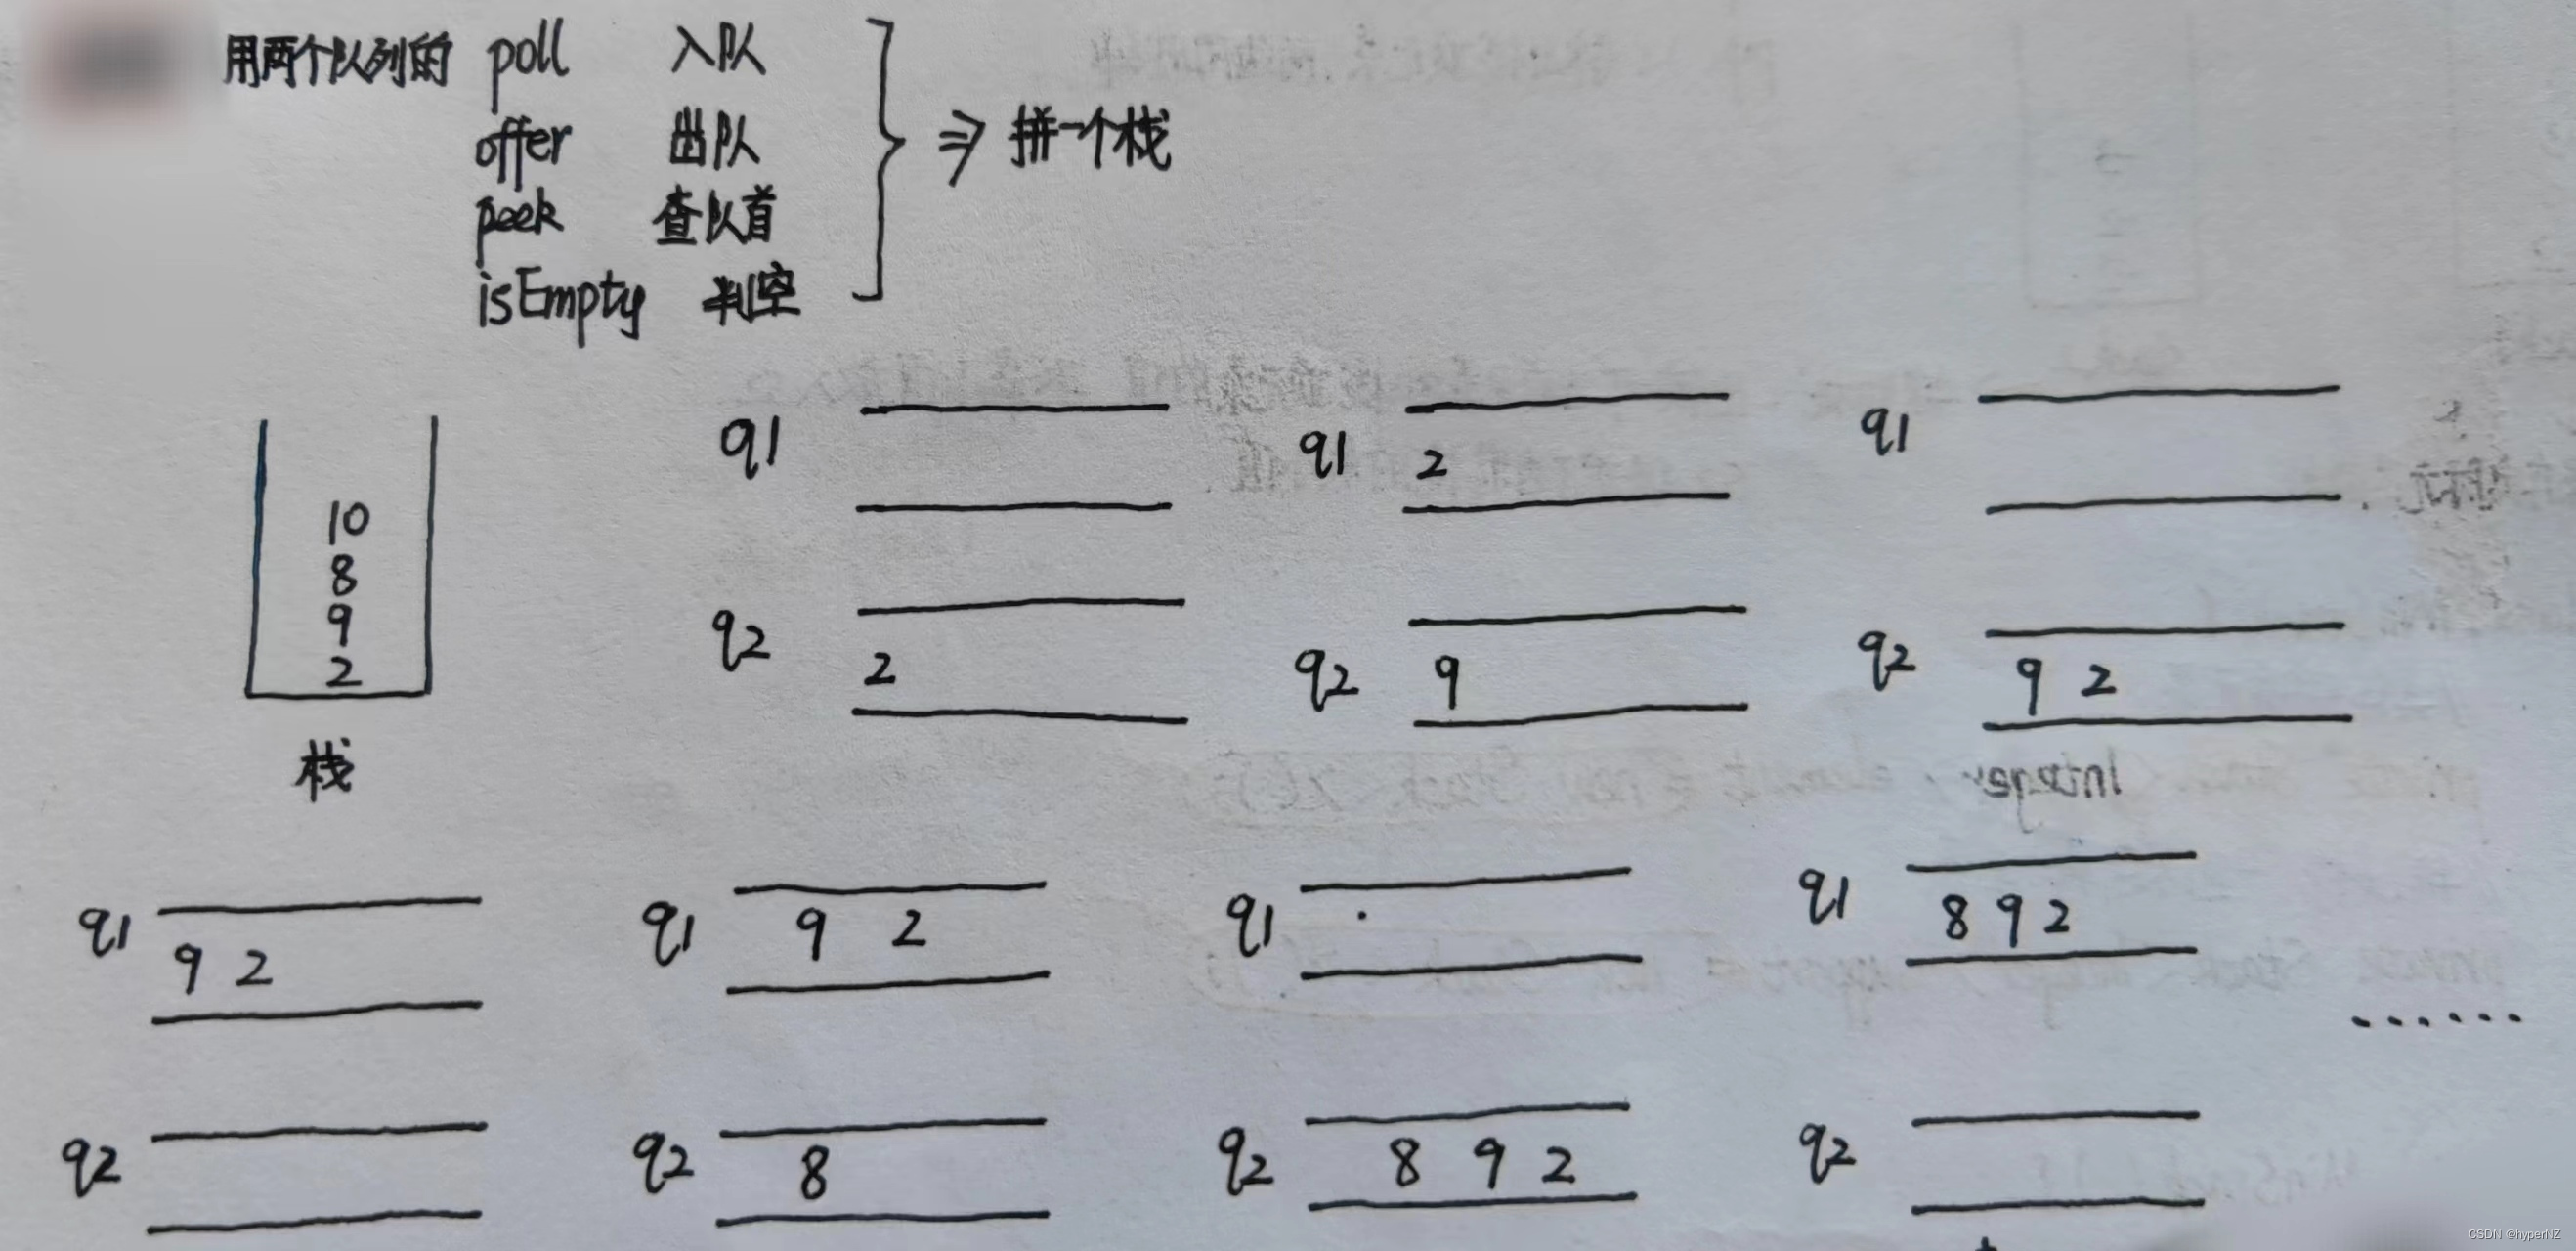 用两个队列的 poll 入队
offer 出队
peek 查队首
isEmpty 判空
⇒ 拼一个栈
10
8
9
2
栈
q1
q2 2
q1 2
q2 9
q1
q2 9 2
q1 9 2
q2
q1 9 2
q2 8
q1
q2 8 9 2
q1 8 9 2
q2
......
Integer
CSDN @hyperNZ